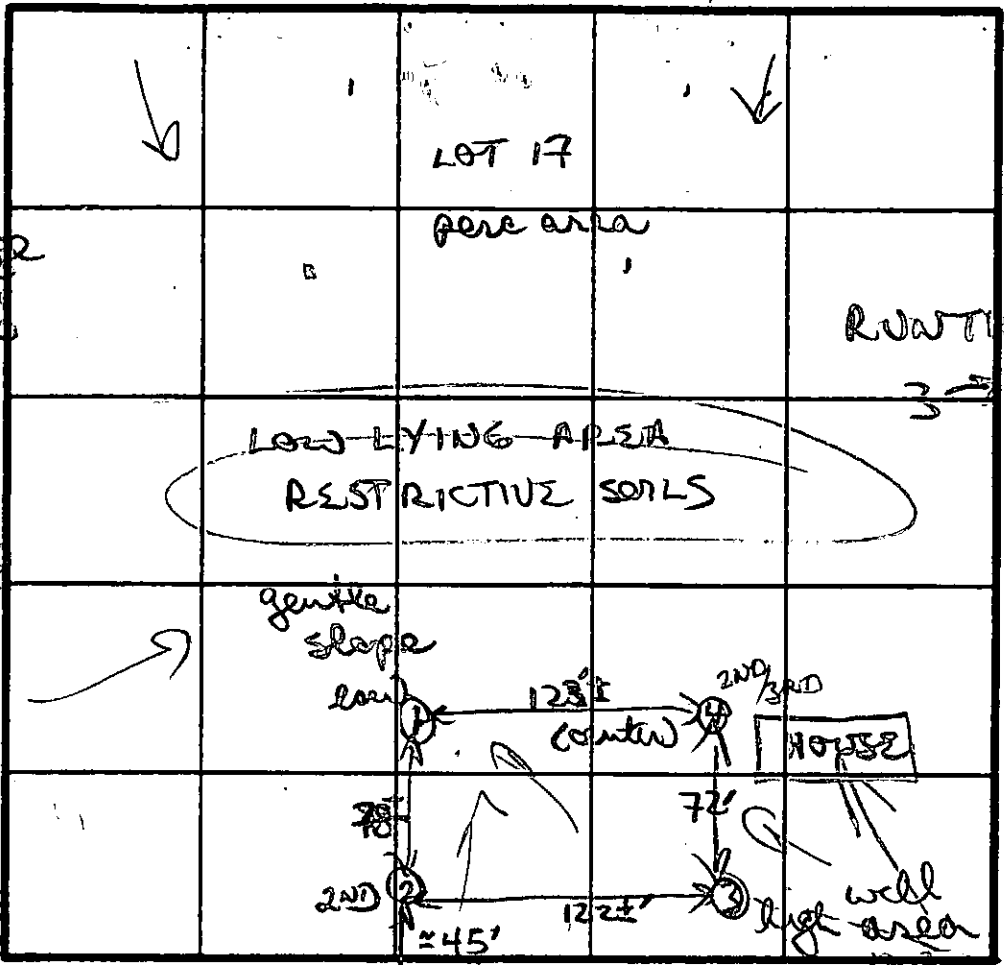 LOT 17
perc area
RUNTI
3
LOW LYING AREA
RESTRICTIVE SOILS
gentle
slope
low
1
123'±
(contour)
4
2ND/3RD
HOUSE
72'
2ND
2
122±'
3
high
well
area
≈45'